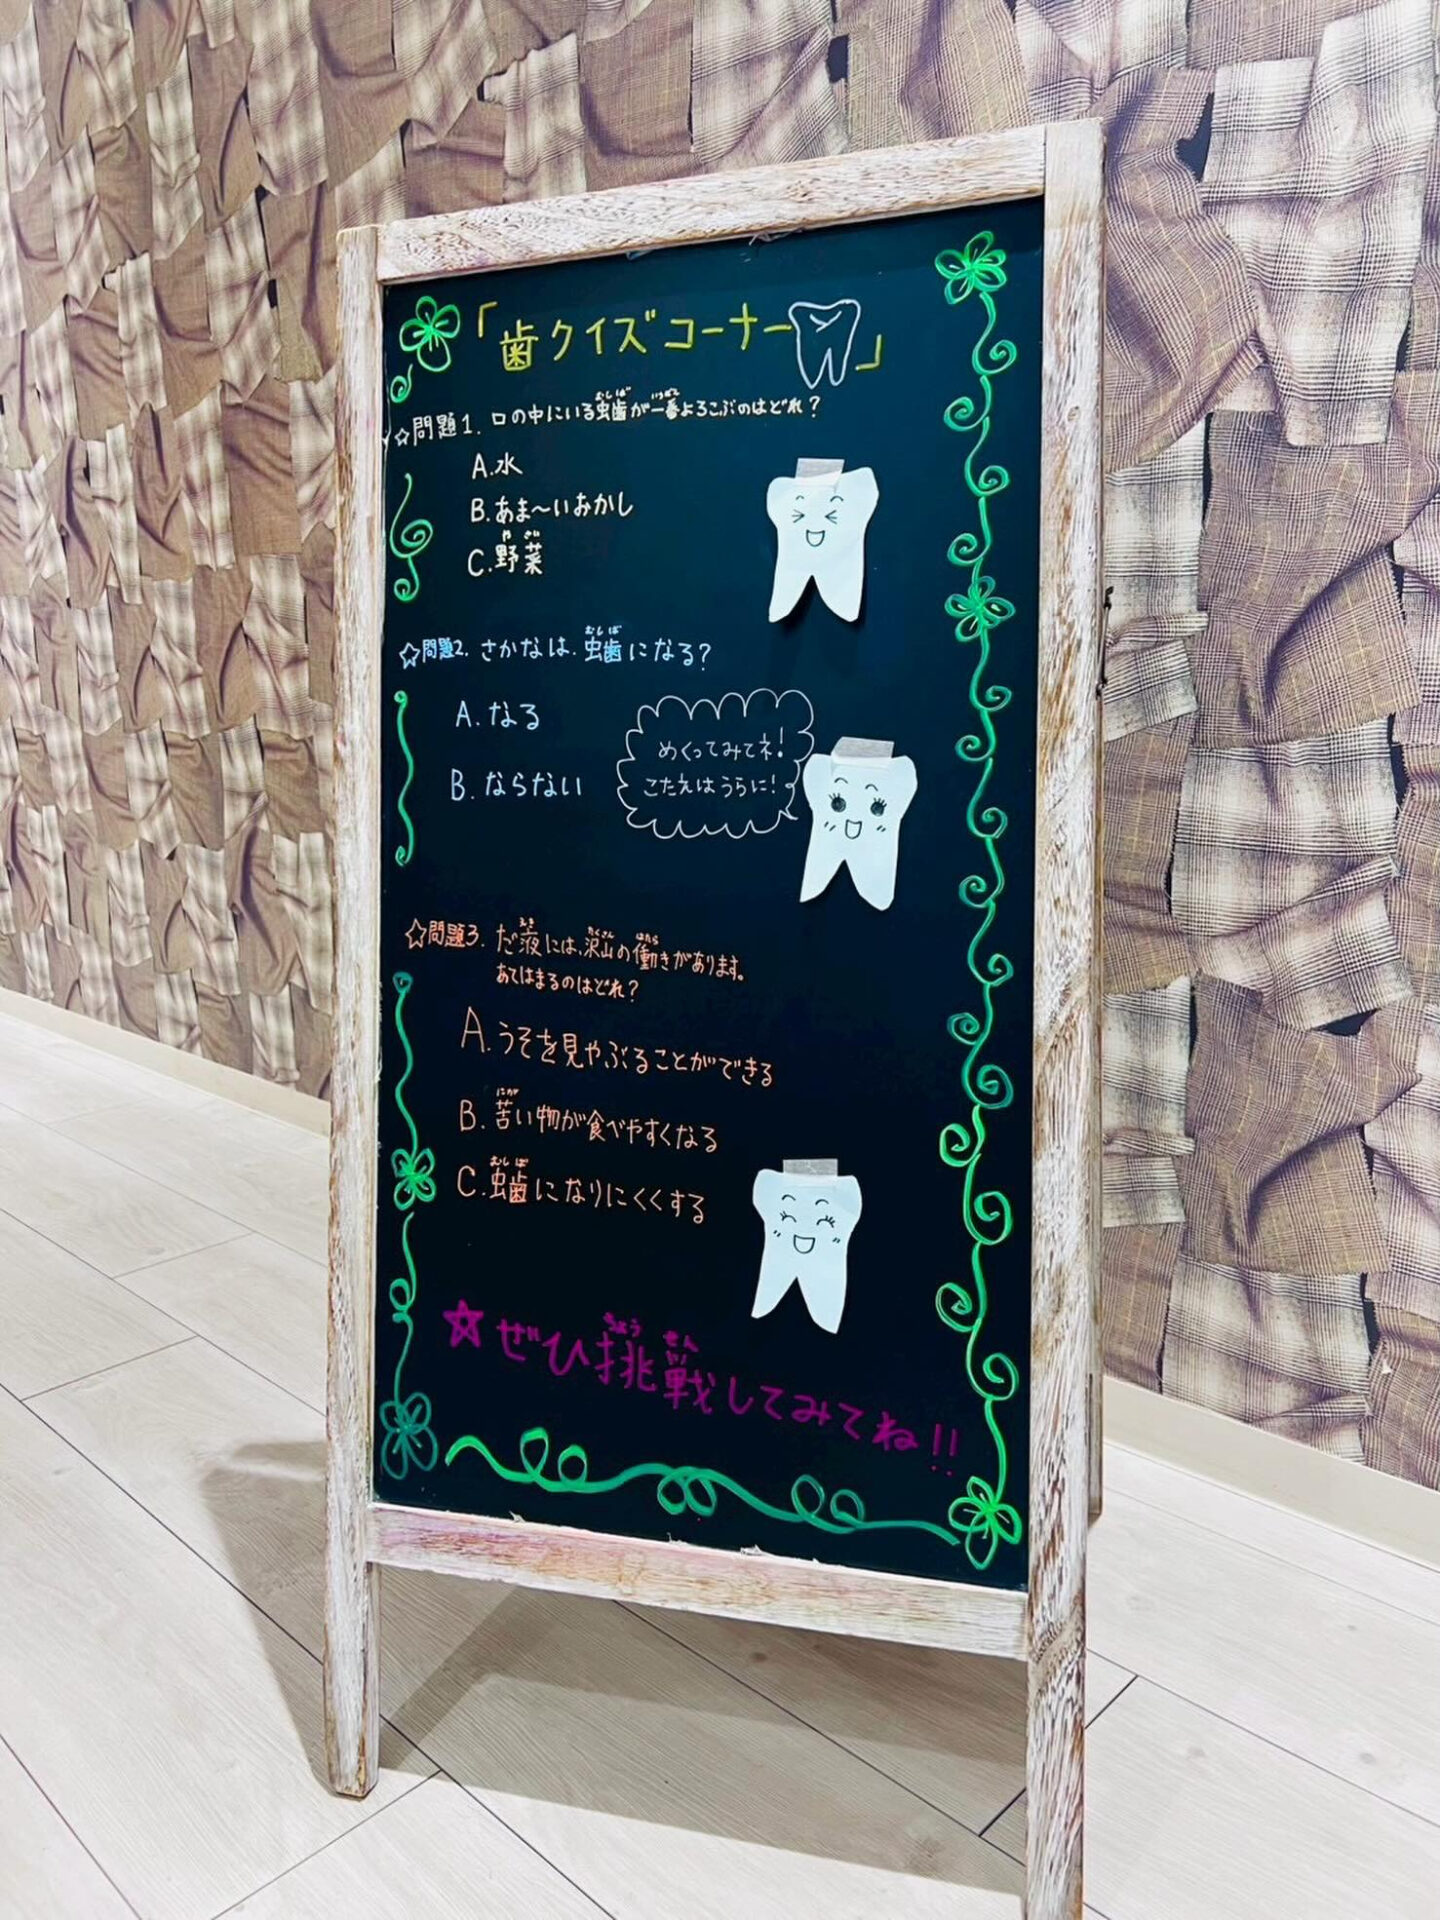 「歯クイズコーナー」
☆問題1. 口の中にいる虫歯が一番よろこぶのはどれ?
A.水
B.あま〜いおかし
C.野菜
☆問題2. さかなは、虫歯になる?
A.なる
B.ならない
めくってみてネ!
こたえはうらに!
☆問題3. だ液には、沢山の働きがあります。
あてはまるのはどれ?
A.うそを見やぶることができる
B.苦い物が食べやすくなる
C.虫歯になりにくくする
☆ぜひ挑戦してみてね!!